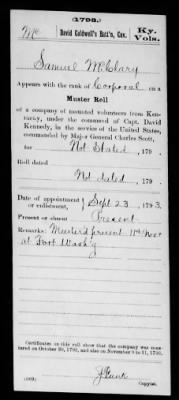 (1793.)
Mc
David Caldwell's Batt'n, Cav.
Ky. Vols.
Samuel McClary
Appears with the rank of Corporal on a
Muster Roll
of a company of mounted volunteers from Ken-
tucky, under the command of Capt. David
Kennedy, in the service of the United States,
commanded by Major General Charles Scott,
for Not Stated, 179 .
Roll dated
Not dated, 179 .
Date of appointment
or enlistment,
Sept 23, 1793.
Present or absent
Present
Remarks: Mustered present 11th Nov
at Fort Wash'g
Certificates on this roll show that the company was mus-
tered on October 30, 1793, and also on November 8 to 11, 1793.
Copyist.